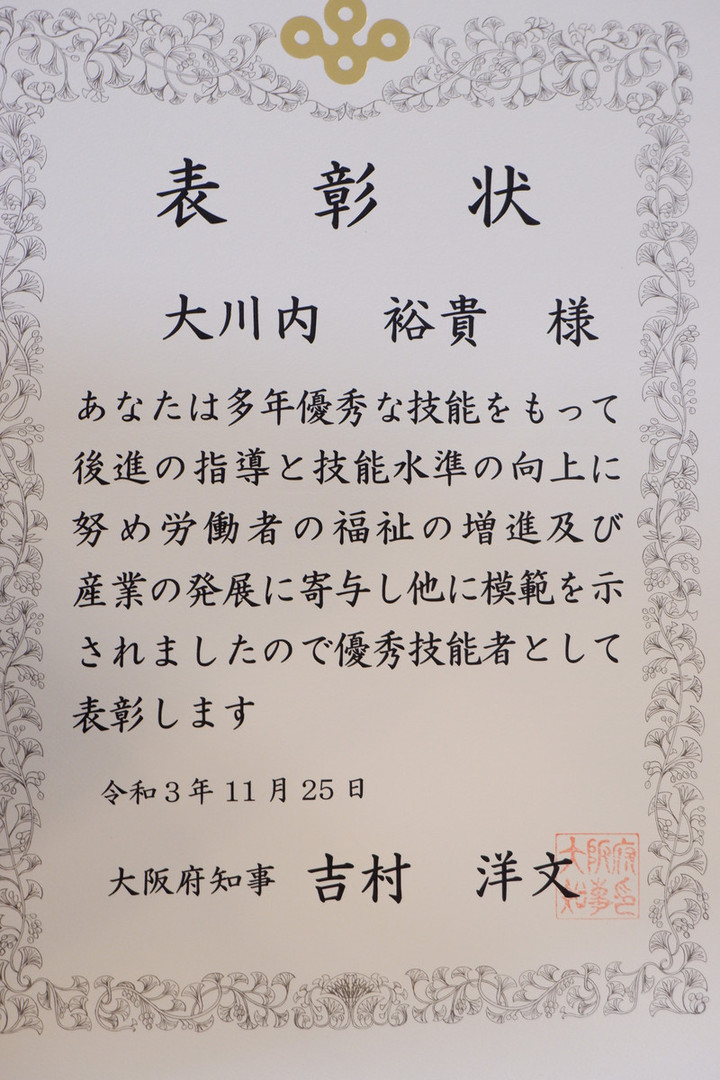 表彰状
大川内 裕貴 様
あなたは多年優秀な技能をもって
後進の指導と技能水準の向上に
努め労働者の福祉の増進及び
産業の発展に寄与し他に模範を示
されましたので優秀技能者として
表彰します
令和3年11月25日
大阪府知事 吉村 洋文
大阪府
知事印